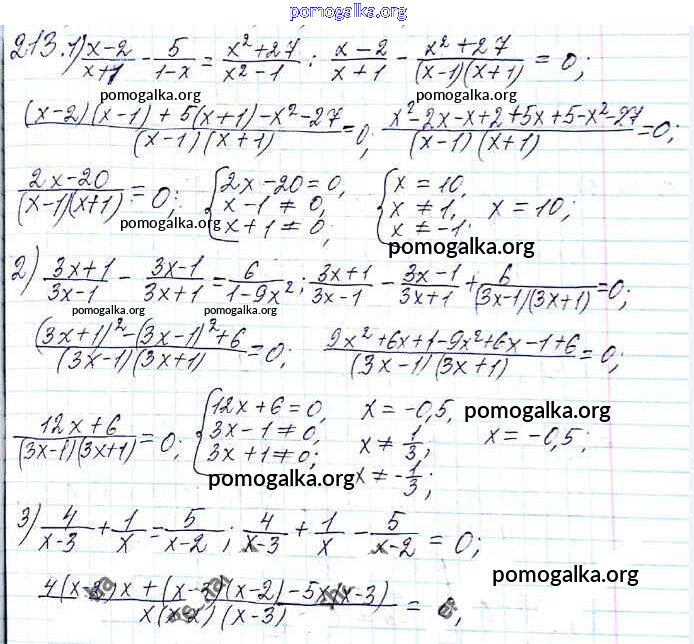 pomogalka.org
213. 1) (x-2)/(x+1) - 5/(1-x) = (x²+27)/(x²-1) ; (x-2)/(x+1) - (x²+27)/((x-1)(x+1)) = 0;
pomogalka.org pomogalka.org
((x-2)(x-1)+5(x+1)-x²-27)/((x-1)(x+1)) = 0; (x²-2x-x+2+5x+5-x²-27)/((x-1)(x+1)) = 0;
(2x-20)/((x-1)(x+1)) = 0; { 2x-20=0, x-1≠0, x+1≠0; { x=10, x≠1, x≠-1; x=10;
pomogalka.org pomogalka.org
2) (3x+1)/(3x-1) - (3x-1)/(3x+1) = 6/(1-9x²) ; (3x+1)/(3x-1) - (3x-1)/(3x+1) + 6/((3x-1)(3x+1)) = 0;
pomogalka.org pomogalka.org
((3x+1)²-(3x-1)²+6)/((3x-1)(3x+1)) = 0; (9x²+6x+1-9x²+6x-1+6)/((3x-1)(3x+1)) = 0;
(12x+6)/((3x-1)(3x+1)) = 0; { 12x+6=0, 3x-1≠0, 3x+1≠0; x=-0,5, x≠1/3, x≠-1/3; x=-0,5;
pomogalka.org
pomogalka.org
3) 4/(x-3) + 1/x = 5/(x-2) ; 4/(x-3) + 1/x - 5/(x-2) = 0;
pomogalka.org
(4(x-2)x+(x-3)(x-2)-5x(x-3))/(x(x-2)(x-3)) = 0;